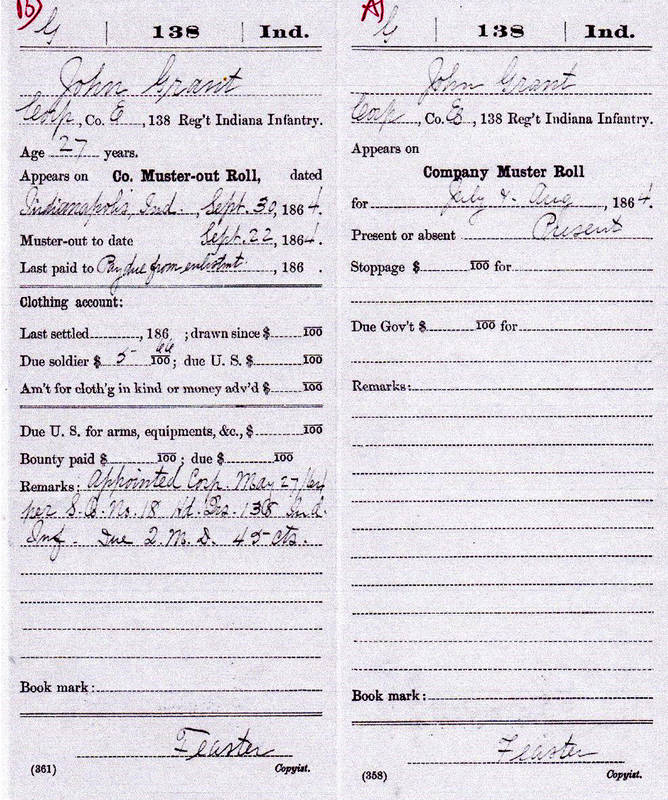 (5)
G | 138 | Ind.
John Grant
Corp, Co. E, 138 Reg't Indiana Infantry.
Age 27 years.
Appears on Co. Muster-out Roll, dated
Indianapolis, Ind. Sept. 30, 1864.
Muster-out to date Sept. 22, 1864.
Last paid to Pay due from enlistmt, 186 .
Clothing account:
Last settled, 186 ; drawn since $ 100
Due soldier $ 5 66/100; due U. S. $ 100
Am't for cloth'g in kind or money adv'd $ 100
Due U. S. for arms, equipments, &c., $ 100
Bounty paid $ 100; due $ 100
Remarks: Appointed Corp. May 27/64
per S.O. No. 18 Hd. Qrs. 138 Ind.
Inf. Due Q.M.D. 45 cts.
Book mark:
Feaster
(361) Copyist.
A)
G | 138 | Ind.
John Grant
Corp, Co. E, 138 Reg't Indiana Infantry.
Appears on
Company Muster Roll
for July & Aug, 1864.
Present or absent Present
Stoppage $ 100 for
Due Gov't $ 100 for
Remarks:
Book mark:
Feaster
(358) Copyist.